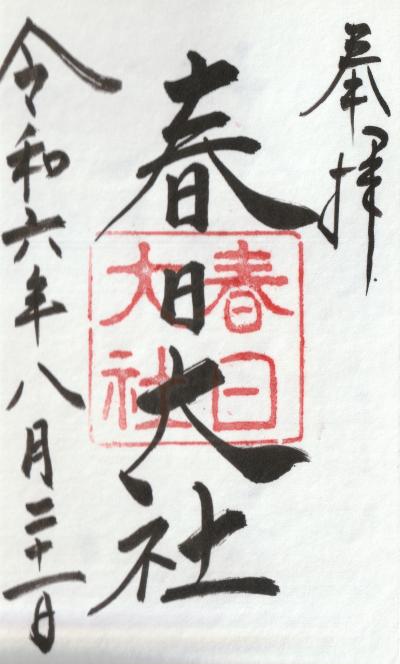 奉拝
春日大社
春日大社
令和六年八月二十一日